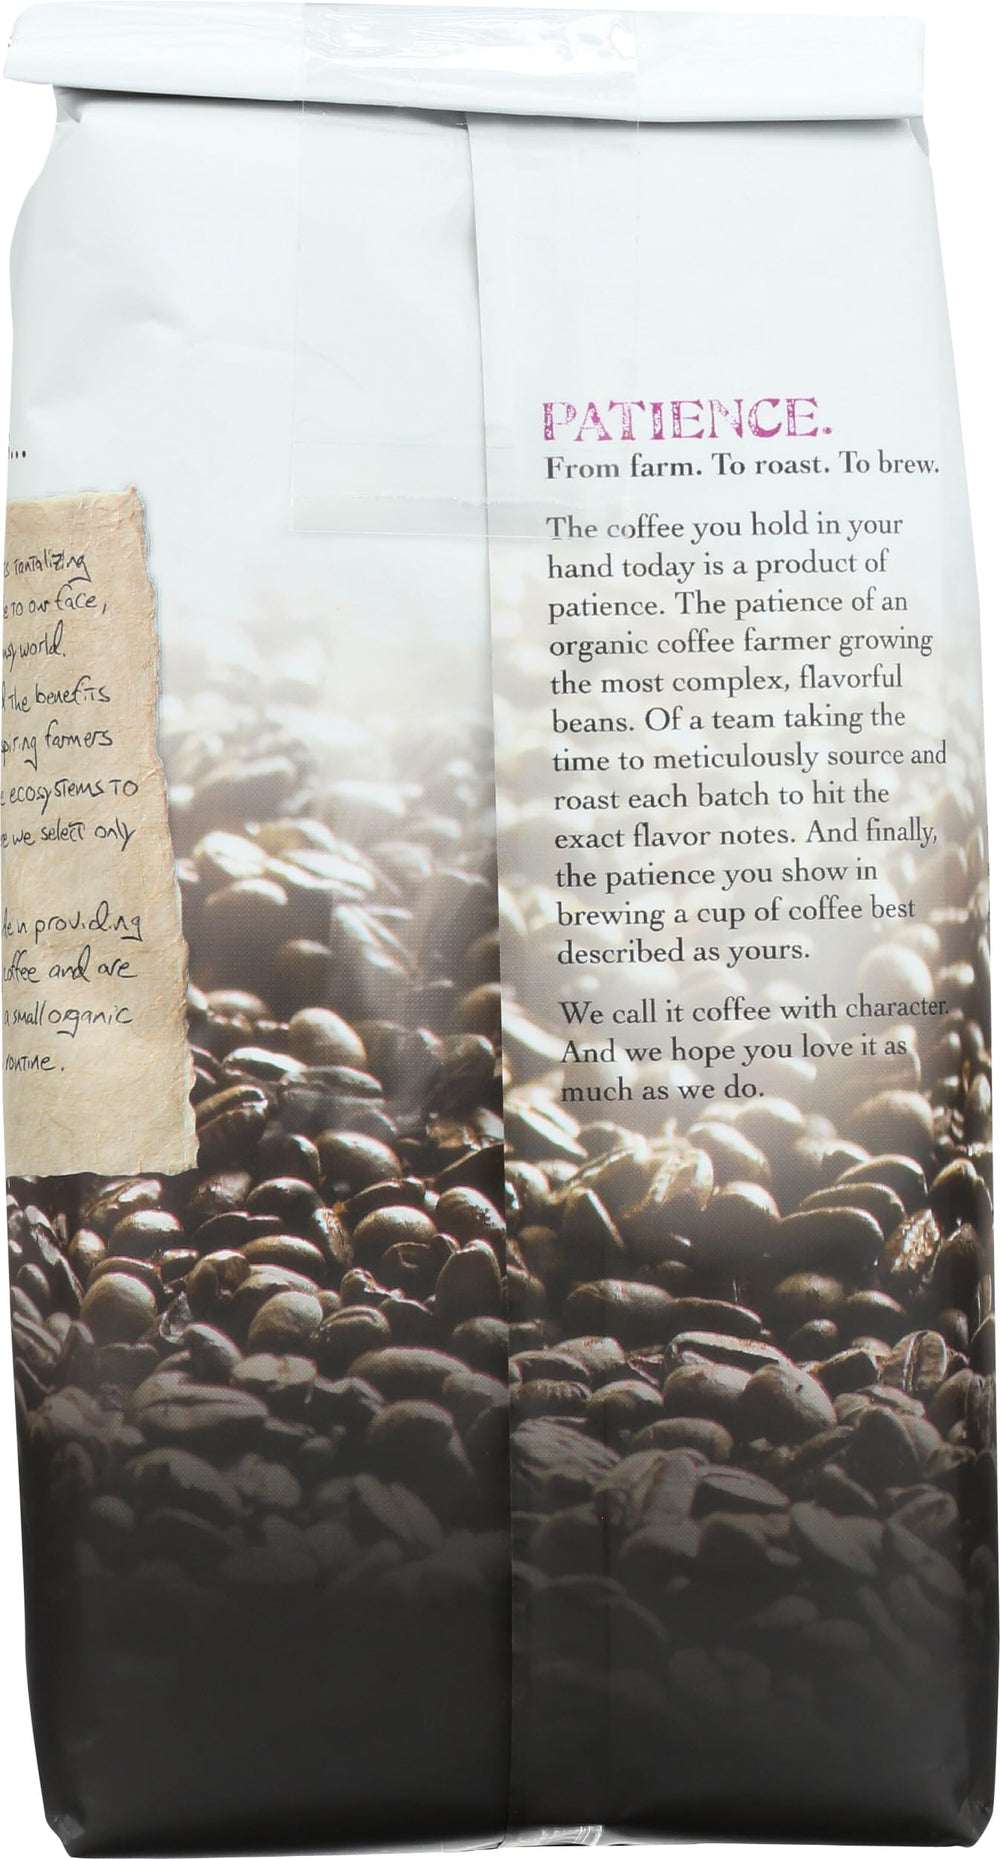 ...
tantalizing
to our face,
world.
the benefits
farmers
ecosystems to
we select only
in providing
and are
a small organic
routine.
PATIENCE.
From farm. To roast. To brew.
The coffee you hold in your
hand today is a product of
patience. The patience of an
organic coffee farmer growing
the most complex, flavorful
beans. Of a team taking the
time to meticulously source and
roast each batch to hit the
exact flavor notes. And finally,
the patience you show in
brewing a cup of coffee best
described as yours.
We call it coffee with character.
And we hope you love it as
much as we do.